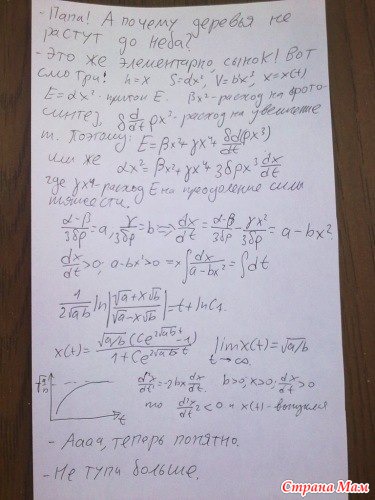 - Папа! А почему деревья не
растут до неба?
- Это же элементарно, сынок! Вот
смотри! h=x S=αx², V=bx³ x=x(t)
E=αx² - приток E. βx² - расход на фото-
синтез, δ d/dt ρx³ - расход на увеличение
m. Поэтому: E=βx²+γx⁴+δd/dt(ρx³)
или же αx²=βx²+γx⁴+3δρx² dx/dt
где γx⁴ - расход E на преодоление силы
тяжести.
(α-β)/3δρ=a, γ/3δρ=b => dx/dt=(α-β)/3δρ-γx²/3δρ=a-bx².
dx/dt>0; a-bx²>0 => ∫dx/(a-bx²)=∫dt
1/(2√ab) ln|(√a+x√b)/(√a-x√b)|=t+lnC₁
x(t)=√a/b(Ce^(2√ab t)-1)/(1+Ce^(2√ab t)) lim x(t)=√a/b
t→∞
√a/b d²x/dt²=-2bx dx/dt. b>0; x>0; dx/dt>0
t то d²x/dt²<0 и x(t) - выпукла
- Аааа, теперь понятно.
- Не тупи больше.
Страна Мам